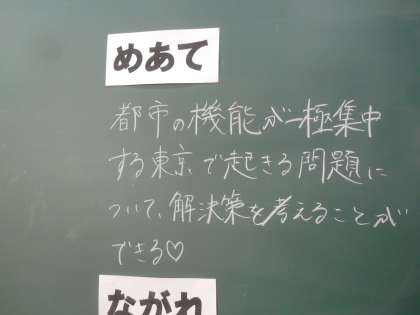 めあて
都市の機能が一極集中
する東京で起きる問題に
ついて、解決策を考えることが
できる♡
ながれ